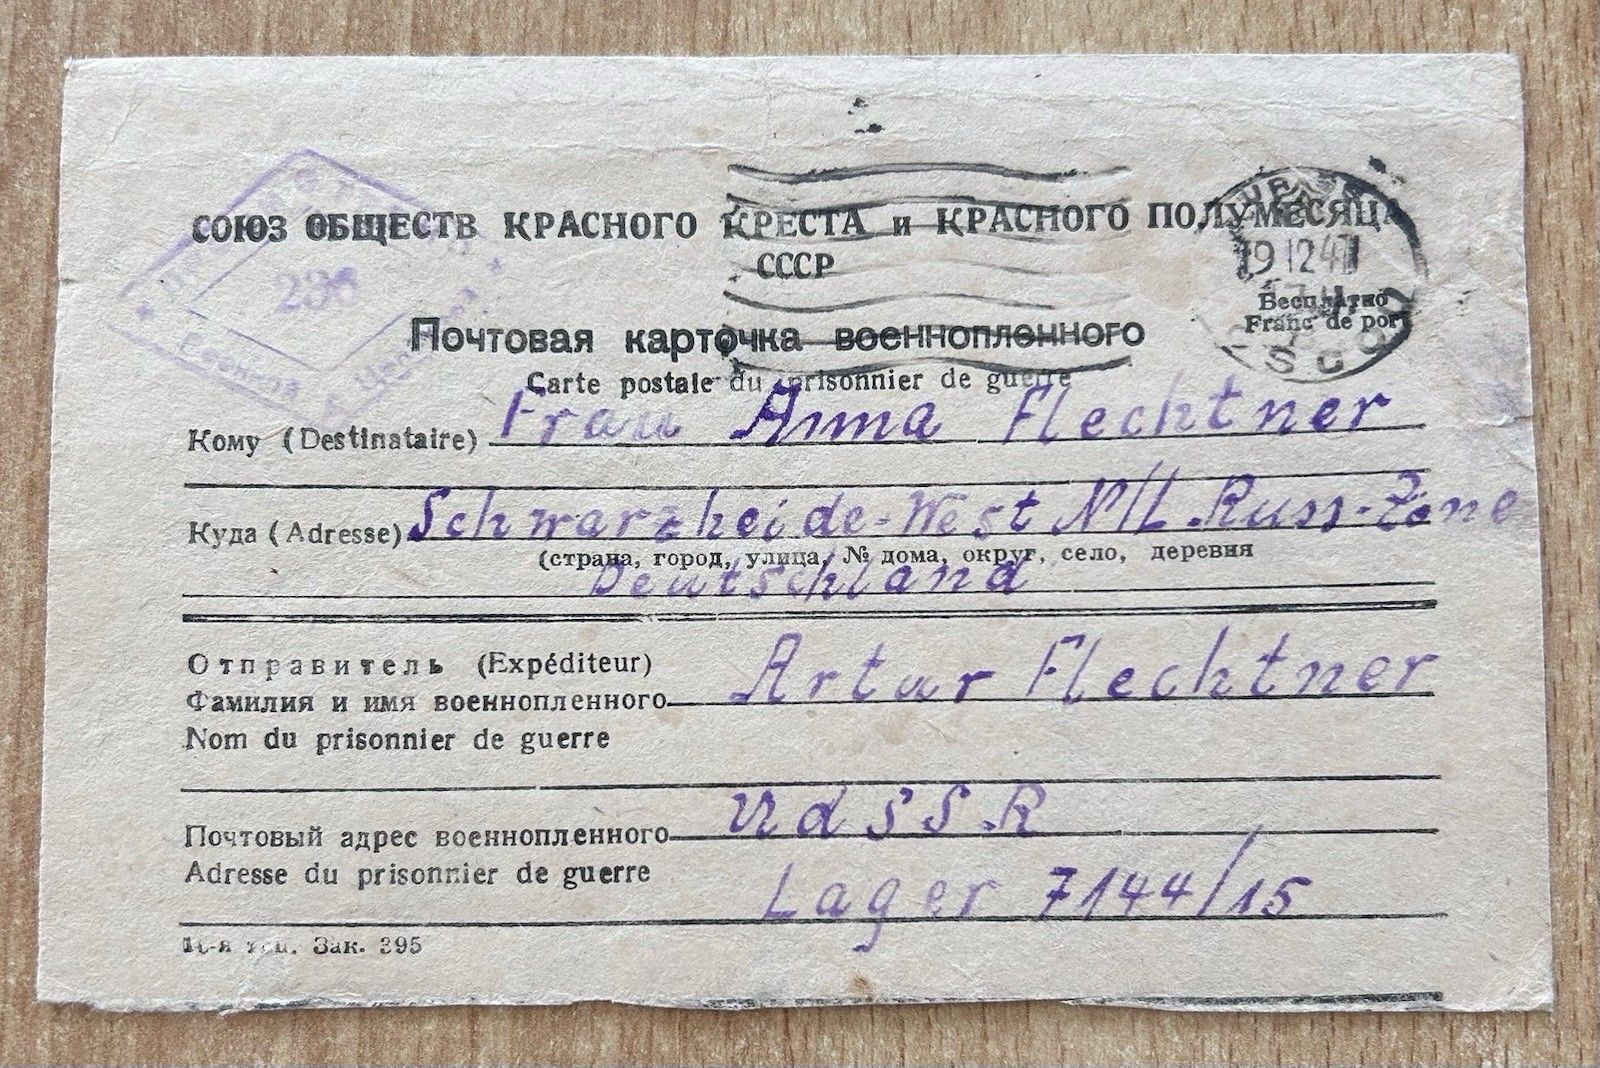 СОЮЗ ОБЩЕСТВ КРАСНОГО КРЕСТА и КРАСНОГО ПОЛУМЕСЯЦА
СССР
236
19 12 47
Бесплатно
Franc de port
Почтовая карточка военнопленного
Carte postale du prisonnier de guerre
Кому (Destinataire) Frau Anna Flechtner
Куда (Adresse) Schwarzheide-West N/L Russ-Zone
(страна, город, улица, № дома, округ, село, деревня
Deutschland
Отправитель (Expéditeur)
Фамилия и имя военнопленного Artur Flechtner
Nom du prisonnier de guerre
Почтовый адрес военнопленного UdSSR
Adresse du prisonnier de guerre Lager 7144/15
Зак. 395